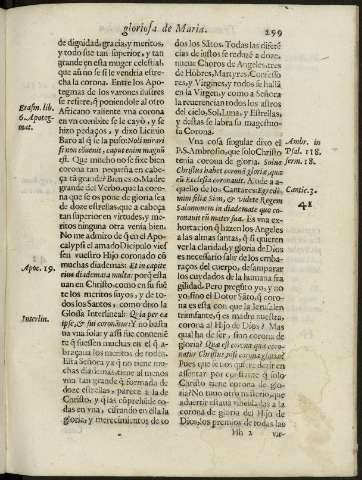 gloriosa de Maria.
299
de dignidad, gracia, y meritos,
y todo fue tan superior, y tan
grande en esta muger celestial,
que aũ no se si le vendria estre-
cha la corona. Entre los Apo-
tegmas de los varones ilustres
se refiere, q̃ poniendole al otro
Africano valiente vna corona
en vn combite se le cayò, y se
hizo pedaços, y dixo Licinio
Noli mirari
si non
est. Que mucho no se fixe bien
corona tan pequeña en cabe-
ça tã grande? Bien es q̃ Madre
grande del Verbo, que la coro-
na que se os pone de gloria sea
de doze estrellas, que a cabeça
tan superior en virtudes, y me-
ritos ninguna otra venia bien.
No me admiro de q̃ en el Apo-
calypsi el amado Dicipulo vies-
sen vuestro Hijo coronado cõ
muchas diademas: Et in capite
eius diademata multa: porq̃ esta-
uan en Christo, como en su fuẽ
te los meritos suyos, y de to-
dos los Santos, como dixo la
Glossa Interlineal: Quia per ca
ipse, & sui coronãtur. Y no basta
ua vna sola; y assi fue convenie̅
te q̃ fuessen muchas en el q̃ a-
braçaua los meritos de todos.
Esta Señora ya q̃ no tiene mu-
chas diademas, tiene al menos
vna tan grande q̃ formada de
doze estrellas, parece a la de
Christo, y q̃ las cõprehẽde to-
das en vna, cifrando en ella la
gloria, y merecimientos de to
Apoc. 19.
Interlin.
dos los Sãtos. Todas las difere̅
cias de justos se reduzẽ a doze,
nueue Choros de Angeles, tres
de Hõbres, Martyres, Confesso
res, y Virgines, y todos se hallã
en la Virgen, y como a Señora
la reuerencian todos los astros
del cielo, Sol, Luna, y Estrellas,
y destas se labra su magestuo-
sa Corona.
Vna cosa singular dixo el
P.S. Ambrosio, que solo Christo
tenia corona de gloria. Solus
Christus habet coronã gloriæ, qua
est Ecclesia coronauit. Alude a a-
quello de los Cantares: Egredi-
mini filiæ Sion, & videte Regem
Salomonem in diademate quo co-
ronauit eũ mater sua. Es vna ex-
hortacion q̃ hazen los Angeles
a las almas santas, q̃ si quieren
ver la claridad, y gloria de Dios
es necessario salir de los emba-
raços del cuerpo, desamparar
los cuydados de la humana fra
gilidad. Pero pregũto yo, y no
yo, sino el Dotor Sãto, q̃ coro-
na es esta con que la Jerusalen
triunfante, q̃ es madre nuestra,
corona al Hijo de Dios? Mas
qual ha de ser, sino corona de
gloria? Quæ est corona qua coro-
natur Christus nisi corona gloriæ?
Pues que le
assentar por constante q̃ solo
Christo tiene corona de glo-
ria? No tuuo otro misterio, que
aduertir estaua vinculada a la
corona de gloria del Hijo de
Dios, los premios de todas las
Hh 2
Ambr. in
Psal. 118.
serm. 18.
Cantic. 3.
41